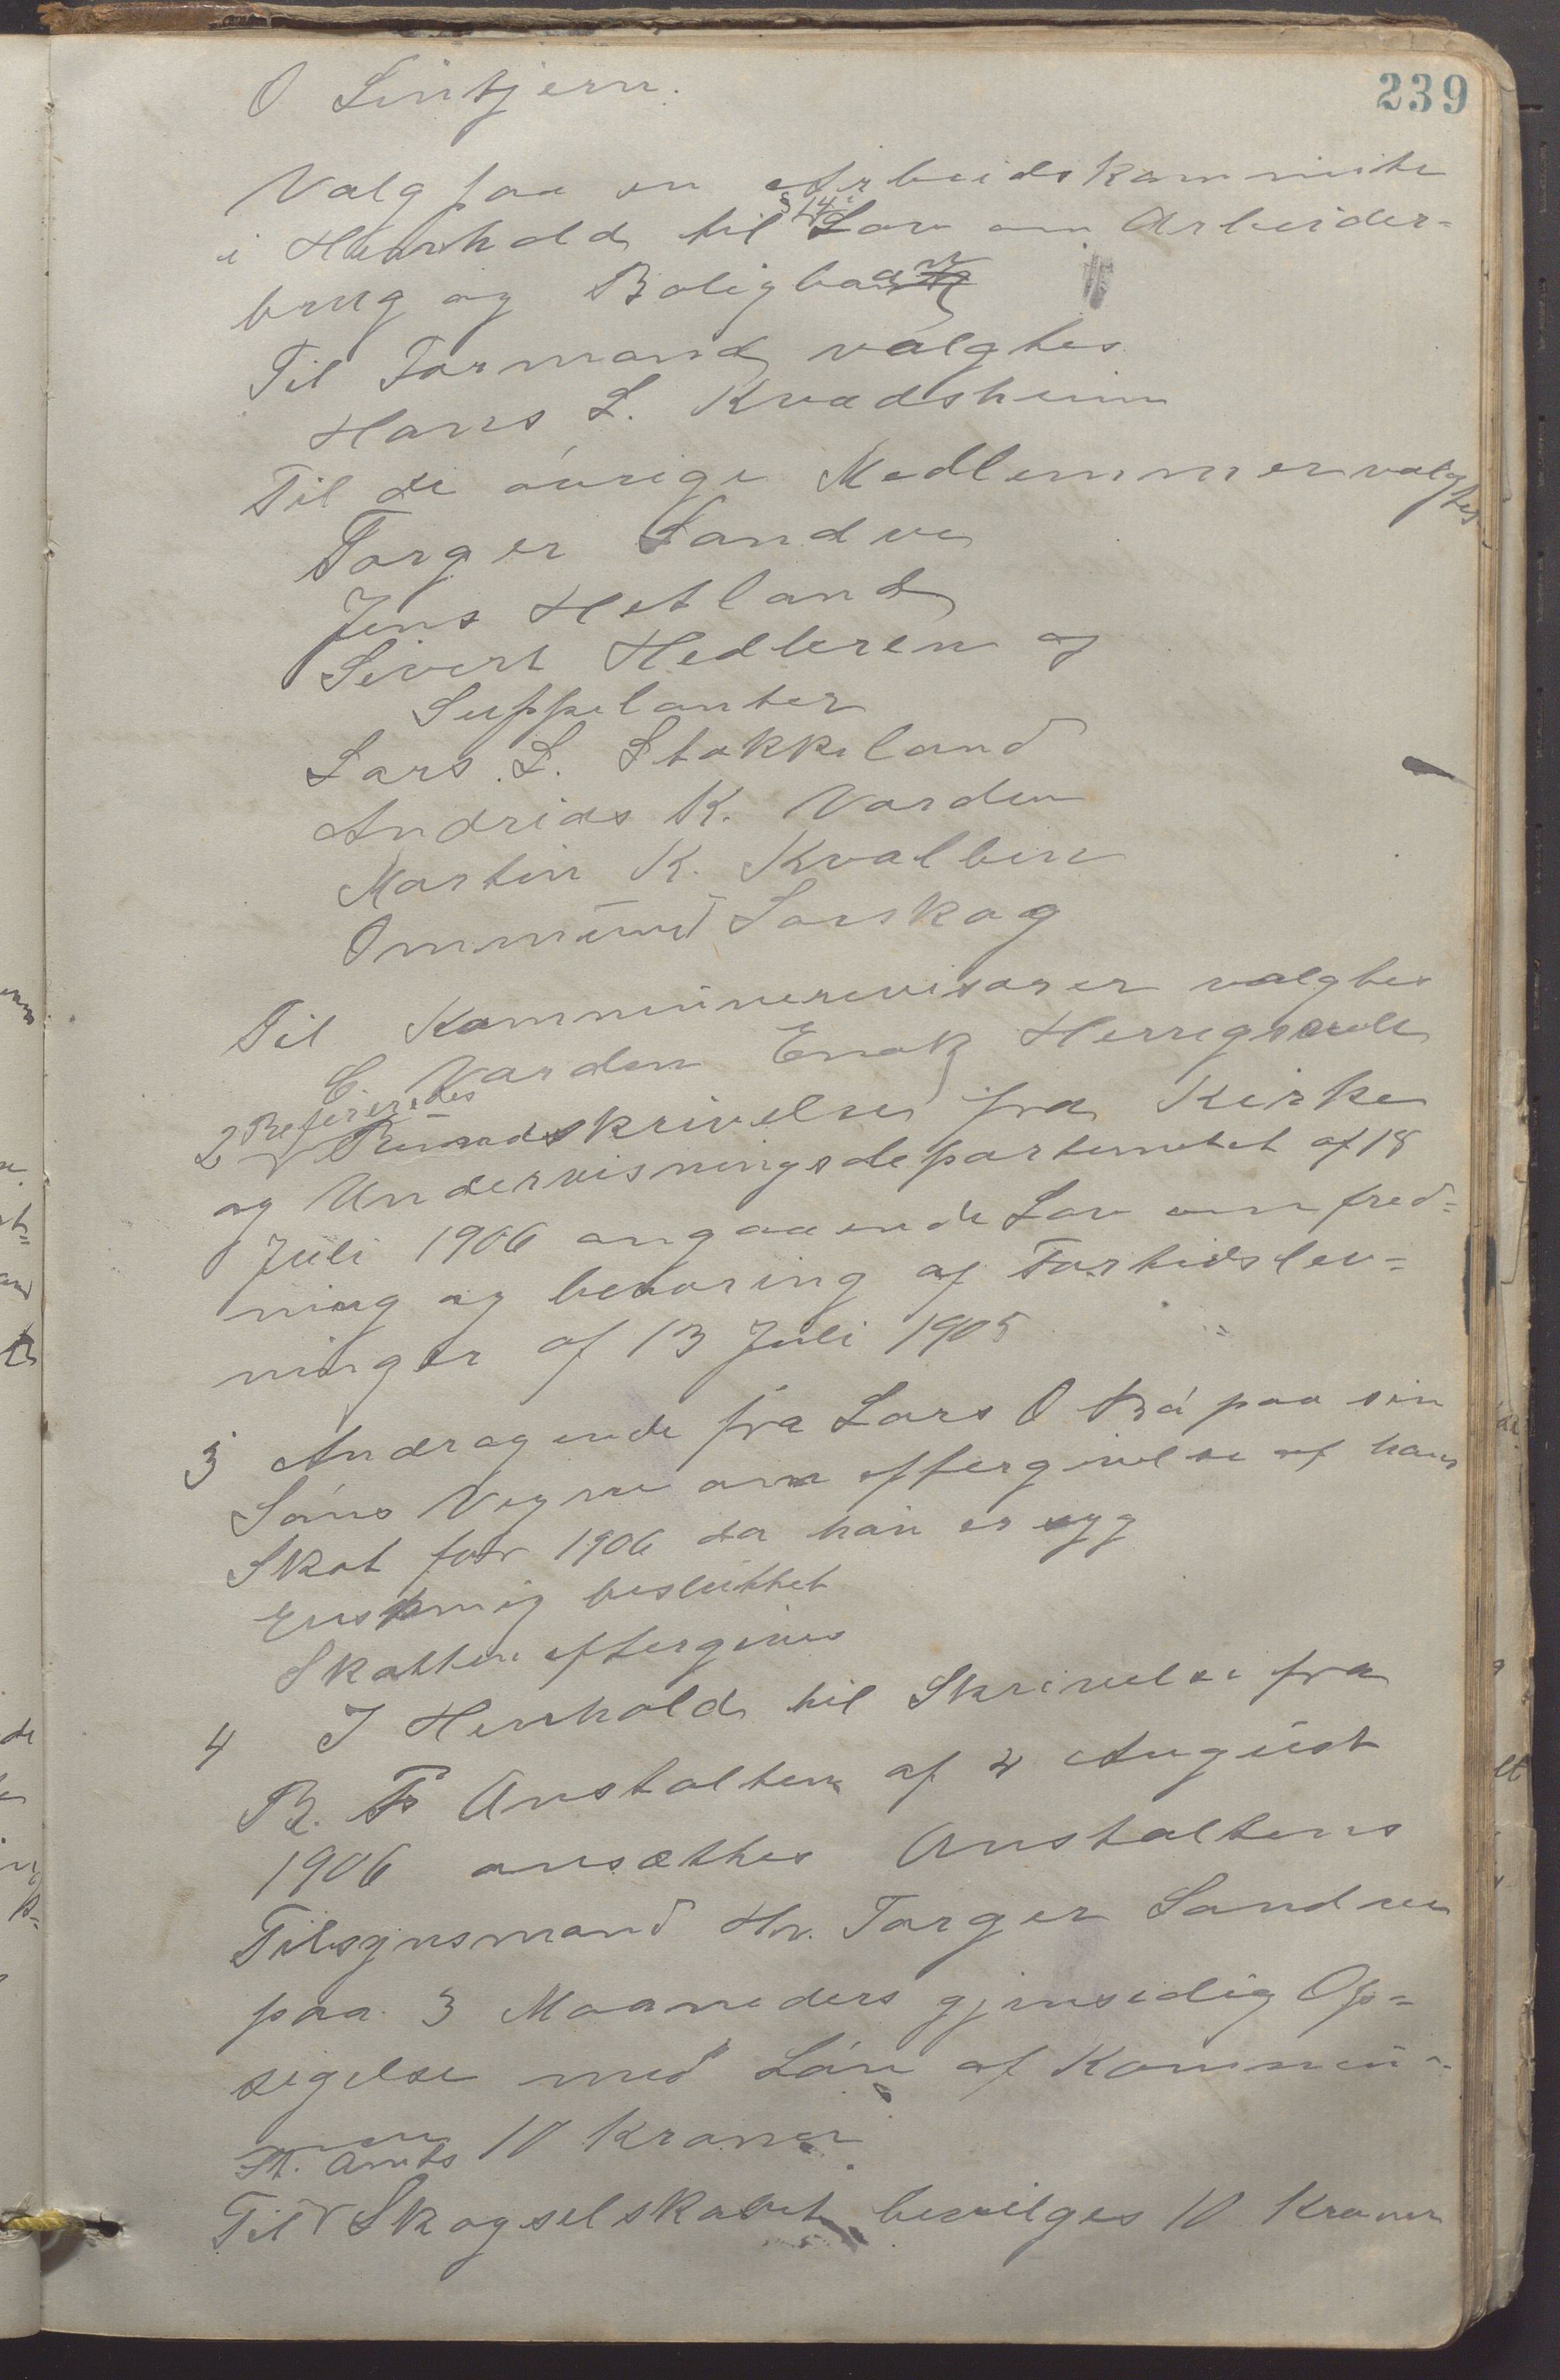 239
O Lintjern.
Valg paa en Arbeidskommite
i Henhold til § 14 i Lov om Arbeider=
brug og Boligbank
Til Formand valgtes
Hans L. Kvadsheim
Til de övrige Medlemmer valgtes
Torger Sandve
Jens Hetland
Sivert Hedleren og
Suppelanter
Lars L. Stokkeland
Andrias K. Varden
Martin K. Kvalbein
Ommund Lorskog
Til Kommunerevisorer valgtes
E. Varden Enok
2 Refereredes
Rundskrivelse fra Kirke
og Undervisningsdepartemtet af 18
Juli 1906 angaaende Lov om fred=
ning og bevaring af Fortidslev=
ninger af 13 Juli 1905
3 Andragende fra Lars O Bö paa sin
Söns Vegne om eftergivelse af hans
Skat for 1906 da han er syg
Enstemig besluttet
Skatten eftergives
4 I Henhold til Skrivelse fra
B. F Anstalten af 4 August
1906 ansættes Anstaltens
Tilsynsmand Hr. Torger Sandve
paa 3 Maaneders gjensidig Op=
sigelse med Lön af Kommu=
nen 10 Kroner.
Til St. Amts Skogselskabet bevilges 10 Kroner